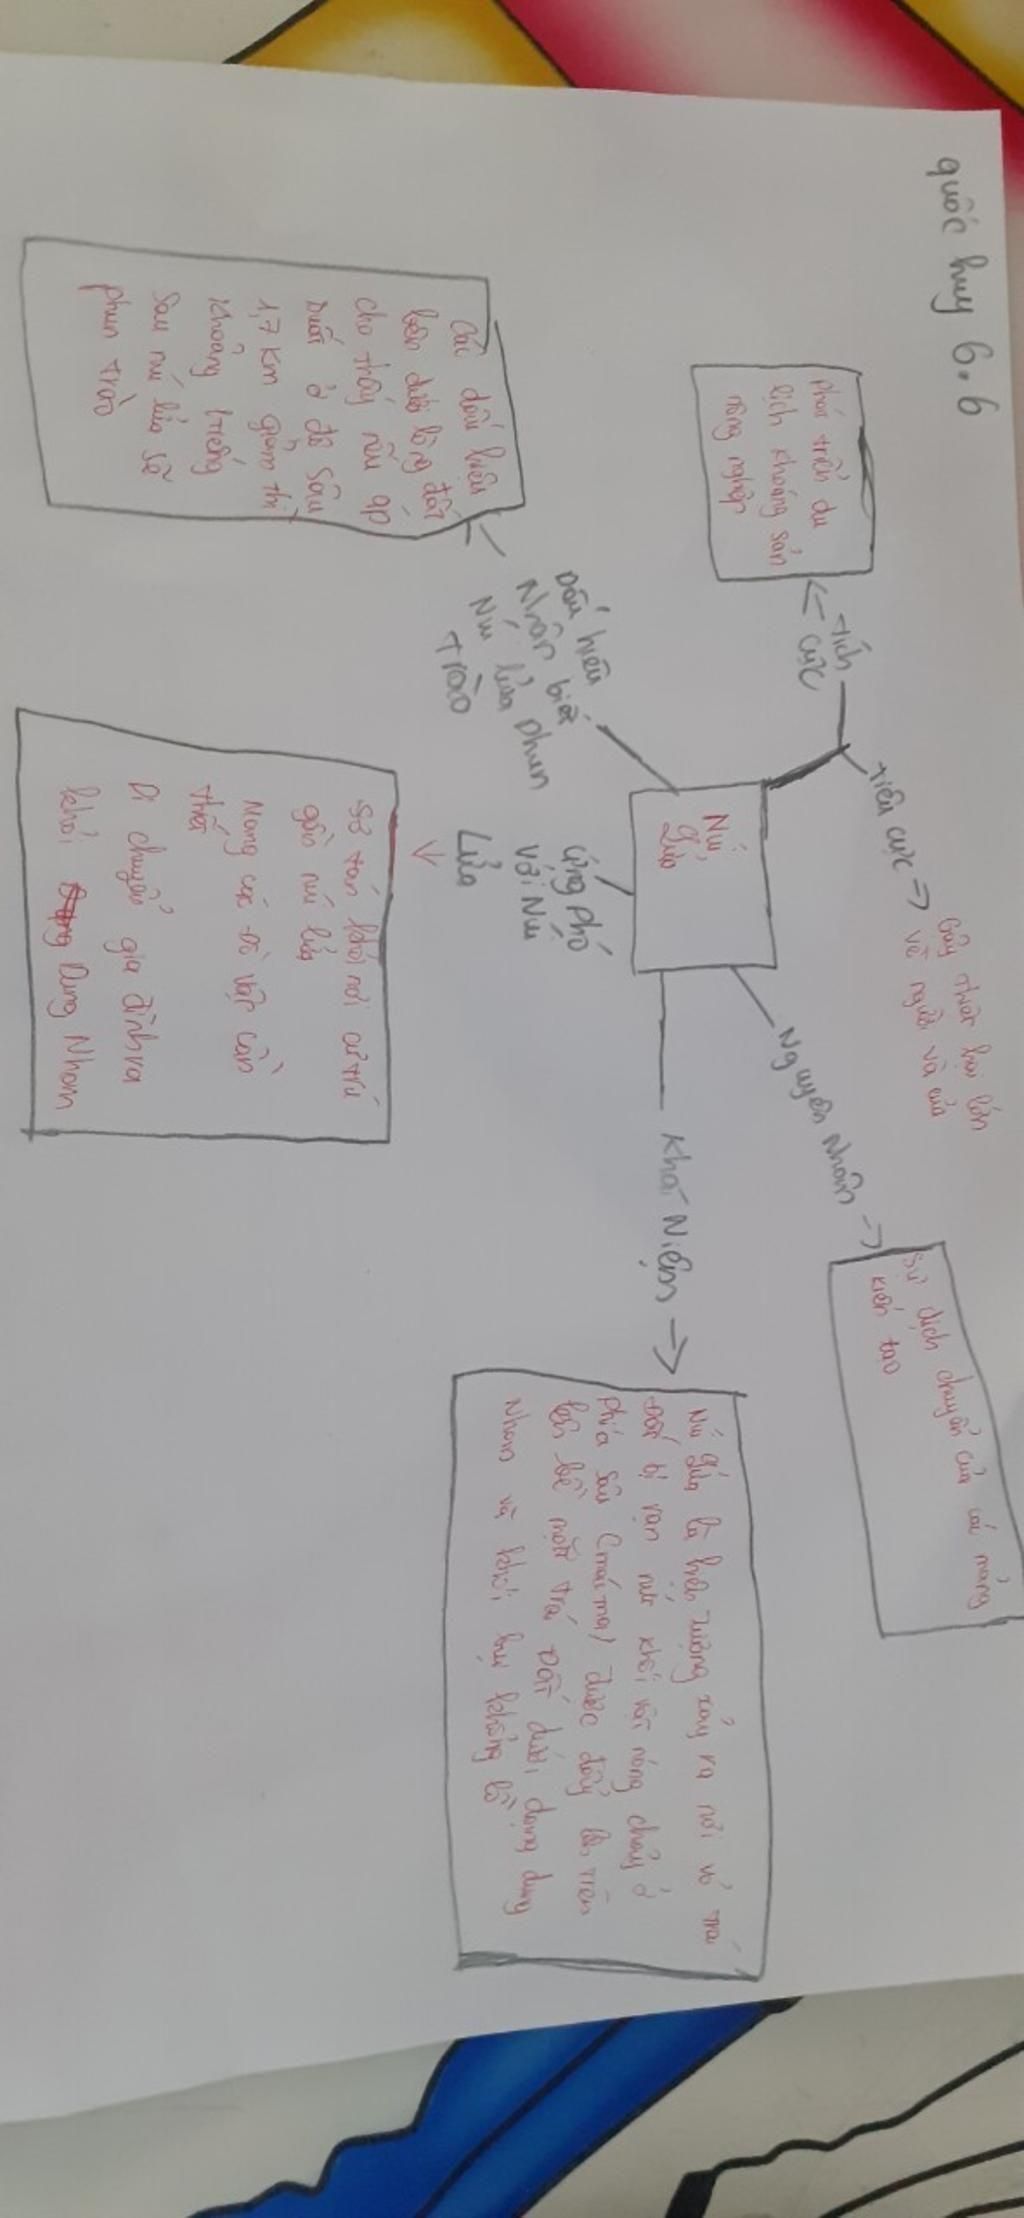 quốc huy 6.6
Phát triển du
lịch khoáng sản
nông nghiệp
tích
cực
tiêu cực →
Gây thiệt hại lớn
về người và của
Các dấu hiệu
bên dưới lòng đất
cho thấy nếu áp
suất ở độ sâu
1,7 km giảm thì
khoảng tiếng
sau núi lửa sẽ
phun trào
Dấu hiệu
Nhận biết
Núi lửa phun
trào
Núi
lửa
ứng phó
với Núi
Lửa
Sơ tán khỏi nơi cư trú
gần núi lửa
Mang các đồ vật cần
thiết
Di chuyển gia đình ra
khỏi Dung Nham
Nguyên Nhân →
Sự dịch chuyển của các mảng
kiến tạo
Khái Niệm →
Núi lửa là hiện tượng xảy ra nơi vỏ trái
Đất bị rạn nứt khối vật nóng chảy ở
phía sâu (mácma) được đẩy lên trên
bề mặt trái Đất dưới dạng dung
Nham và khói bụi khổng lồ